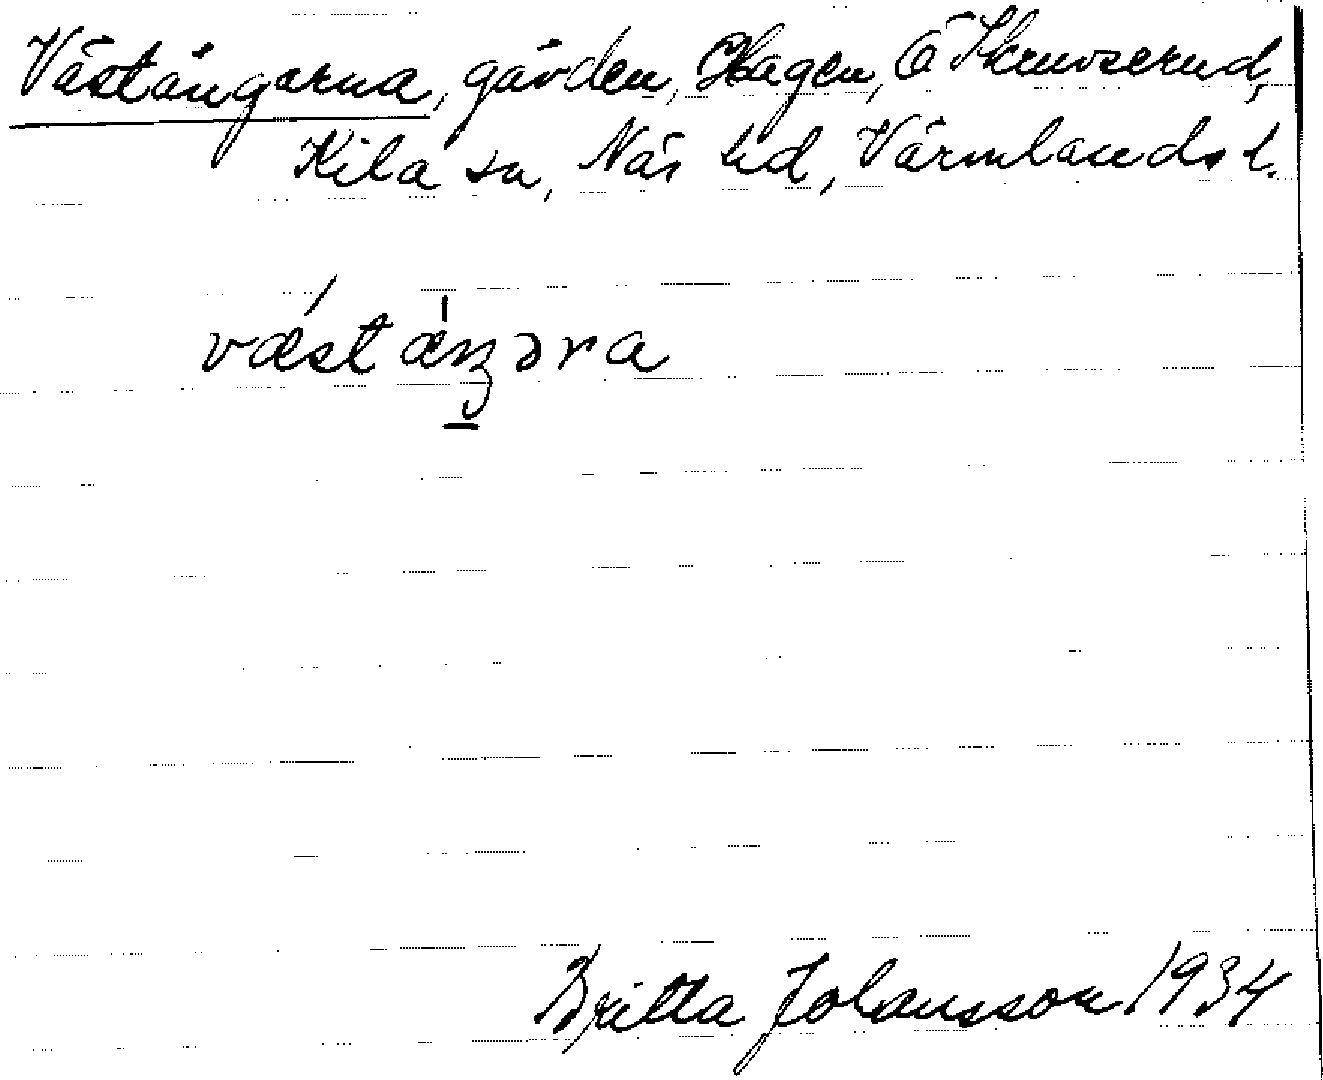 Västängarna, gården, Hagen, Ö Skruvserud,
Kila sn, Näs hd, Värmlands l.
væ´st æŋ̠əra
Britta Johansson 1934